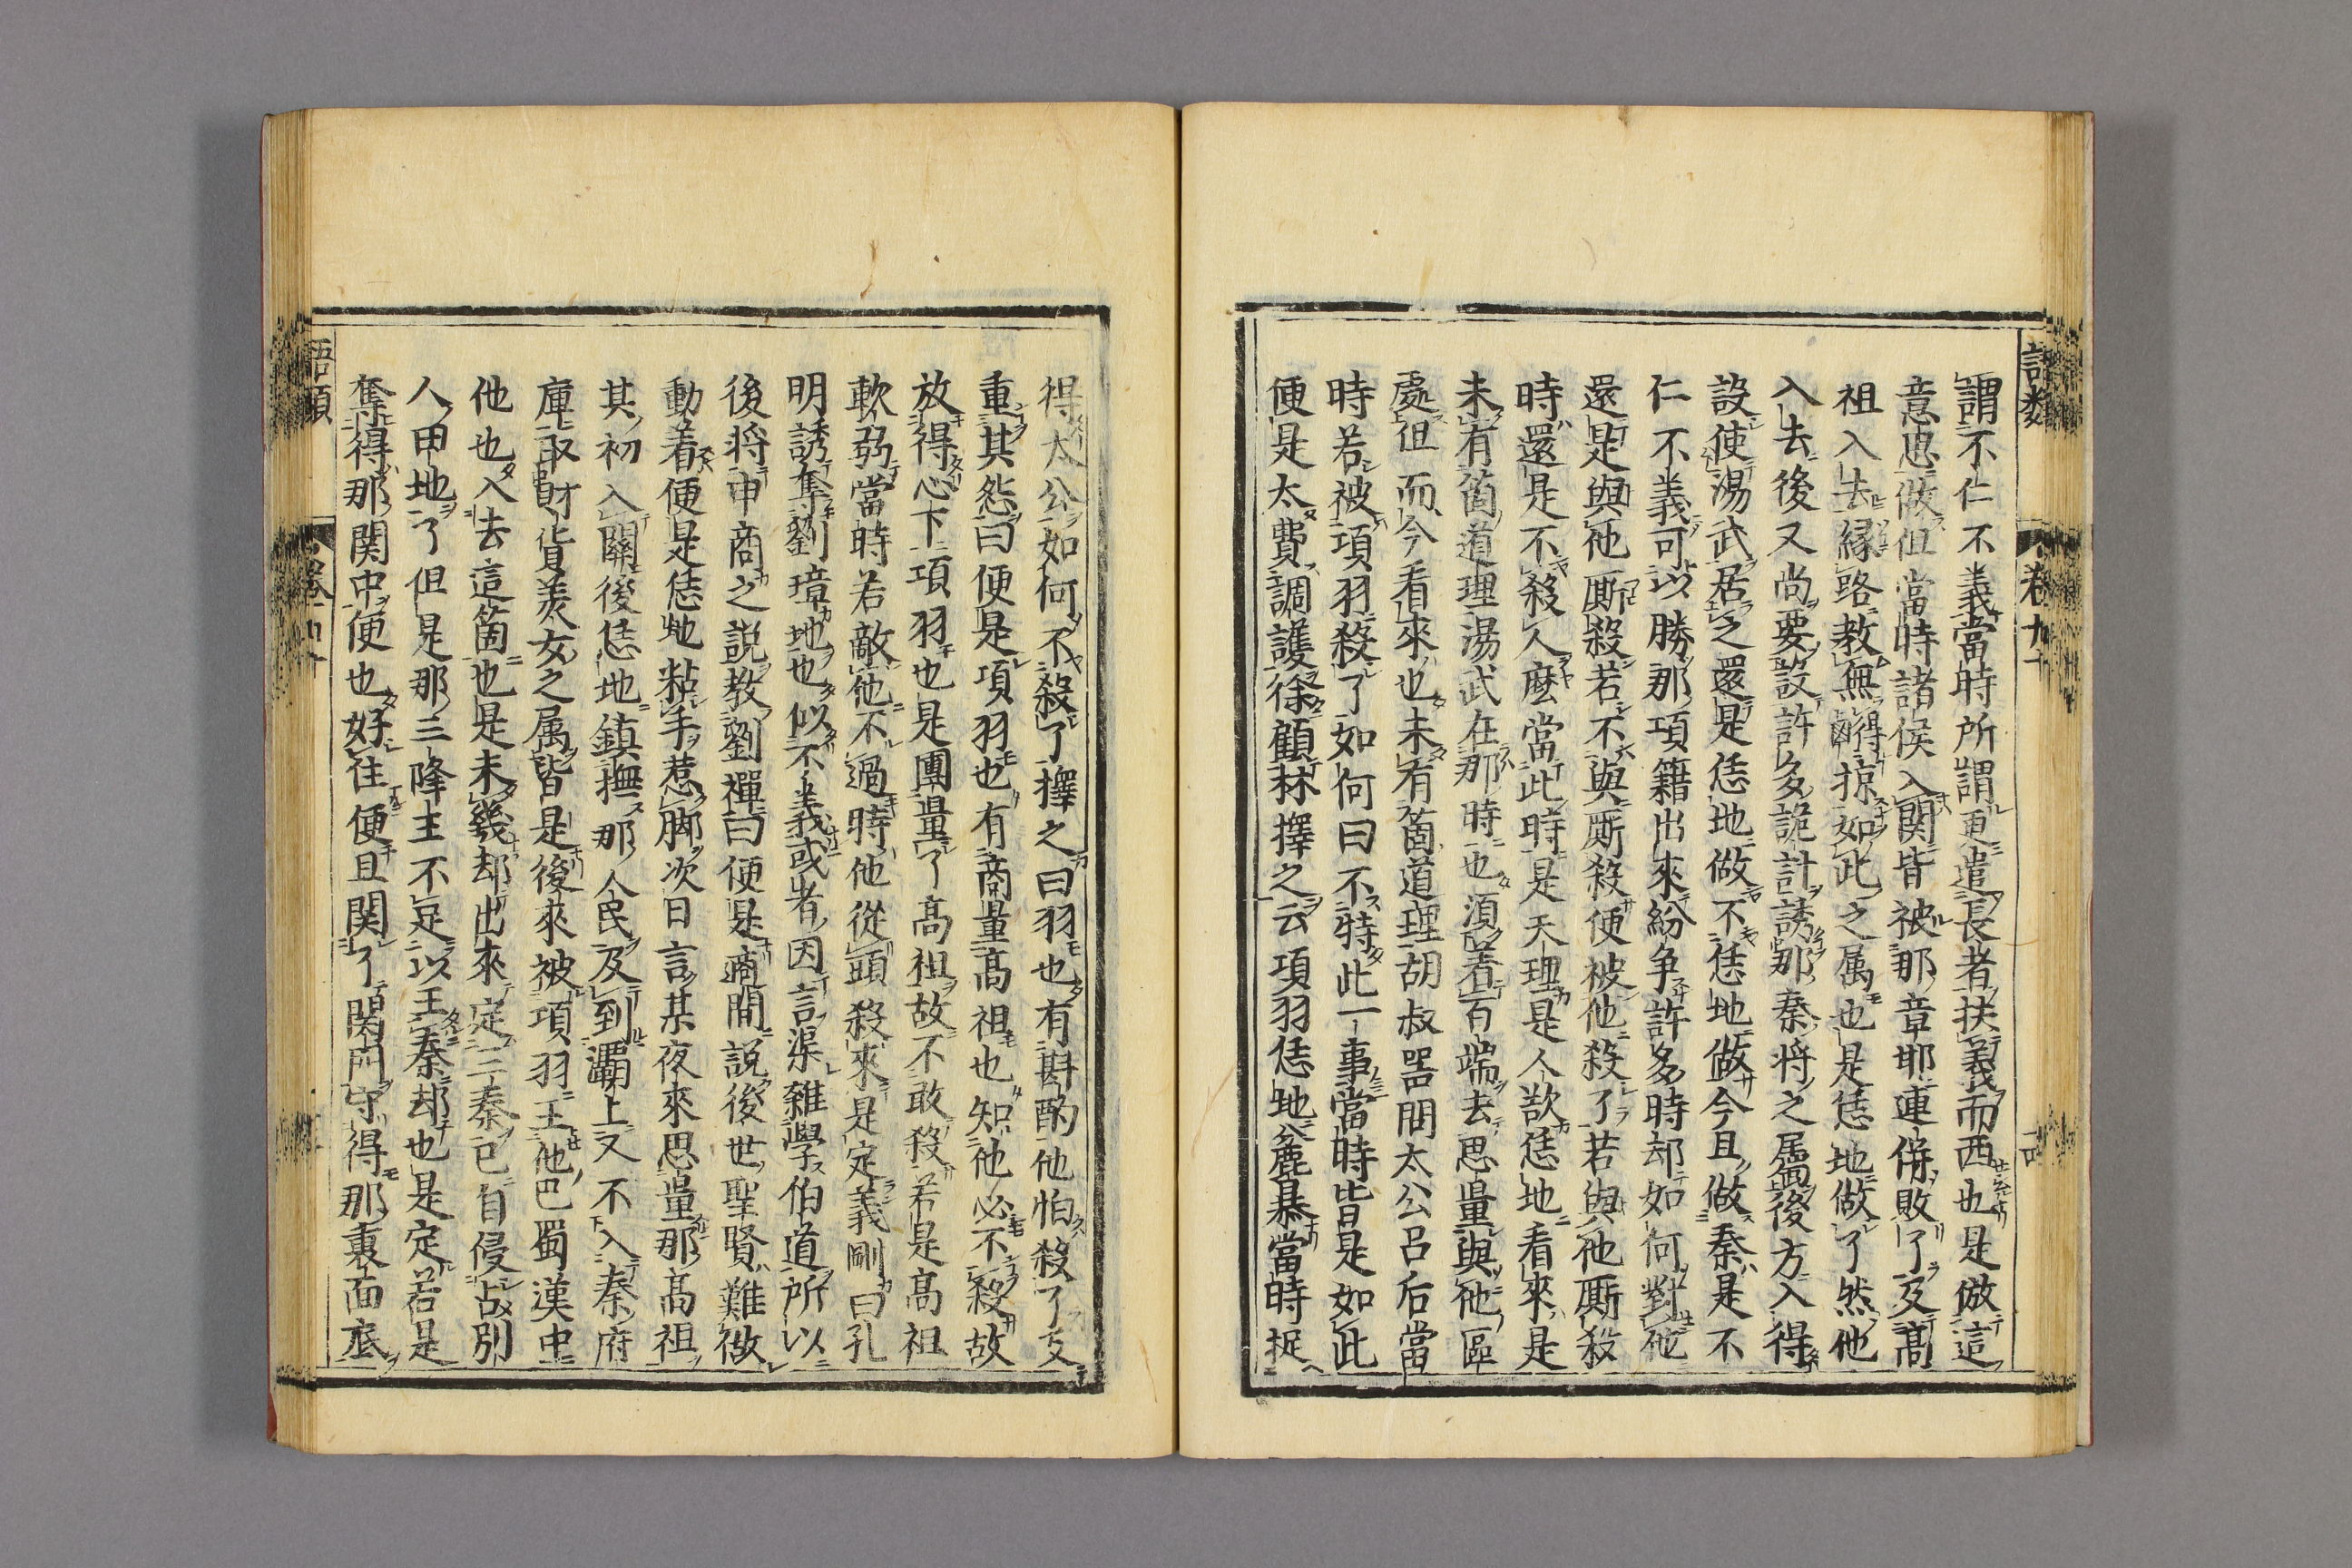 謂不仁不義當時所謂更遣長者扶義而西也是倣這
意思做但當時諸侯入関皆被那章邯連併敗了及高
祖入去縁路教無得掠如此之属也是恁地做了然他
入去後又尚要設許多詭計誘那秦將之属後方入得
設使湯武居之還是恁地做不恁地做今且做秦是不
仁不義可以勝那項籍出來紛争許多時却如何對他
還是與他厮殺若不與厮殺便被他殺了若與他厮殺
時還是不殺人麼當此時是天理是人欲恁地看來是
未有箇道理湯武在那時也須著百端去思量與他區
處但而今看來也未有箇道理胡叔器問太公呂后當
時若被項羽殺了如何曰不特此一事當時皆是如此
便是太費調護徐顧林擇之云項羽恁地麁暴當時捉
得太公如何不殺了擇之曰羽也有斟酌他怕殺了反
重其怨曰便是項羽也有商量高祖也知他必不殺故
放得心下項羽也是團量了高祖故不敢殺若是高祖
軟弱當時若敵他不過時他從頭殺來是定義剛曰孔
明誘奪劉璋地也似不義或者因言渠雜學伯道所以
後將申商之説教劉禪曰便是適間説後世聖賢難做
動着便是恁地粘手惹脚次日言某夜來思量那高祖
其初入關後恁地鎮撫那人民及到灞上又不入秦府
庫取財貨美女之属皆是後來被項羽王他巴蜀漢中
他也入去這箇也是未幾却出來定三秦已自侵占別
人甲地了但是那三降主不足以王秦却也是定若是
奪得那関中便也好住便且関了関門守得那裏面底